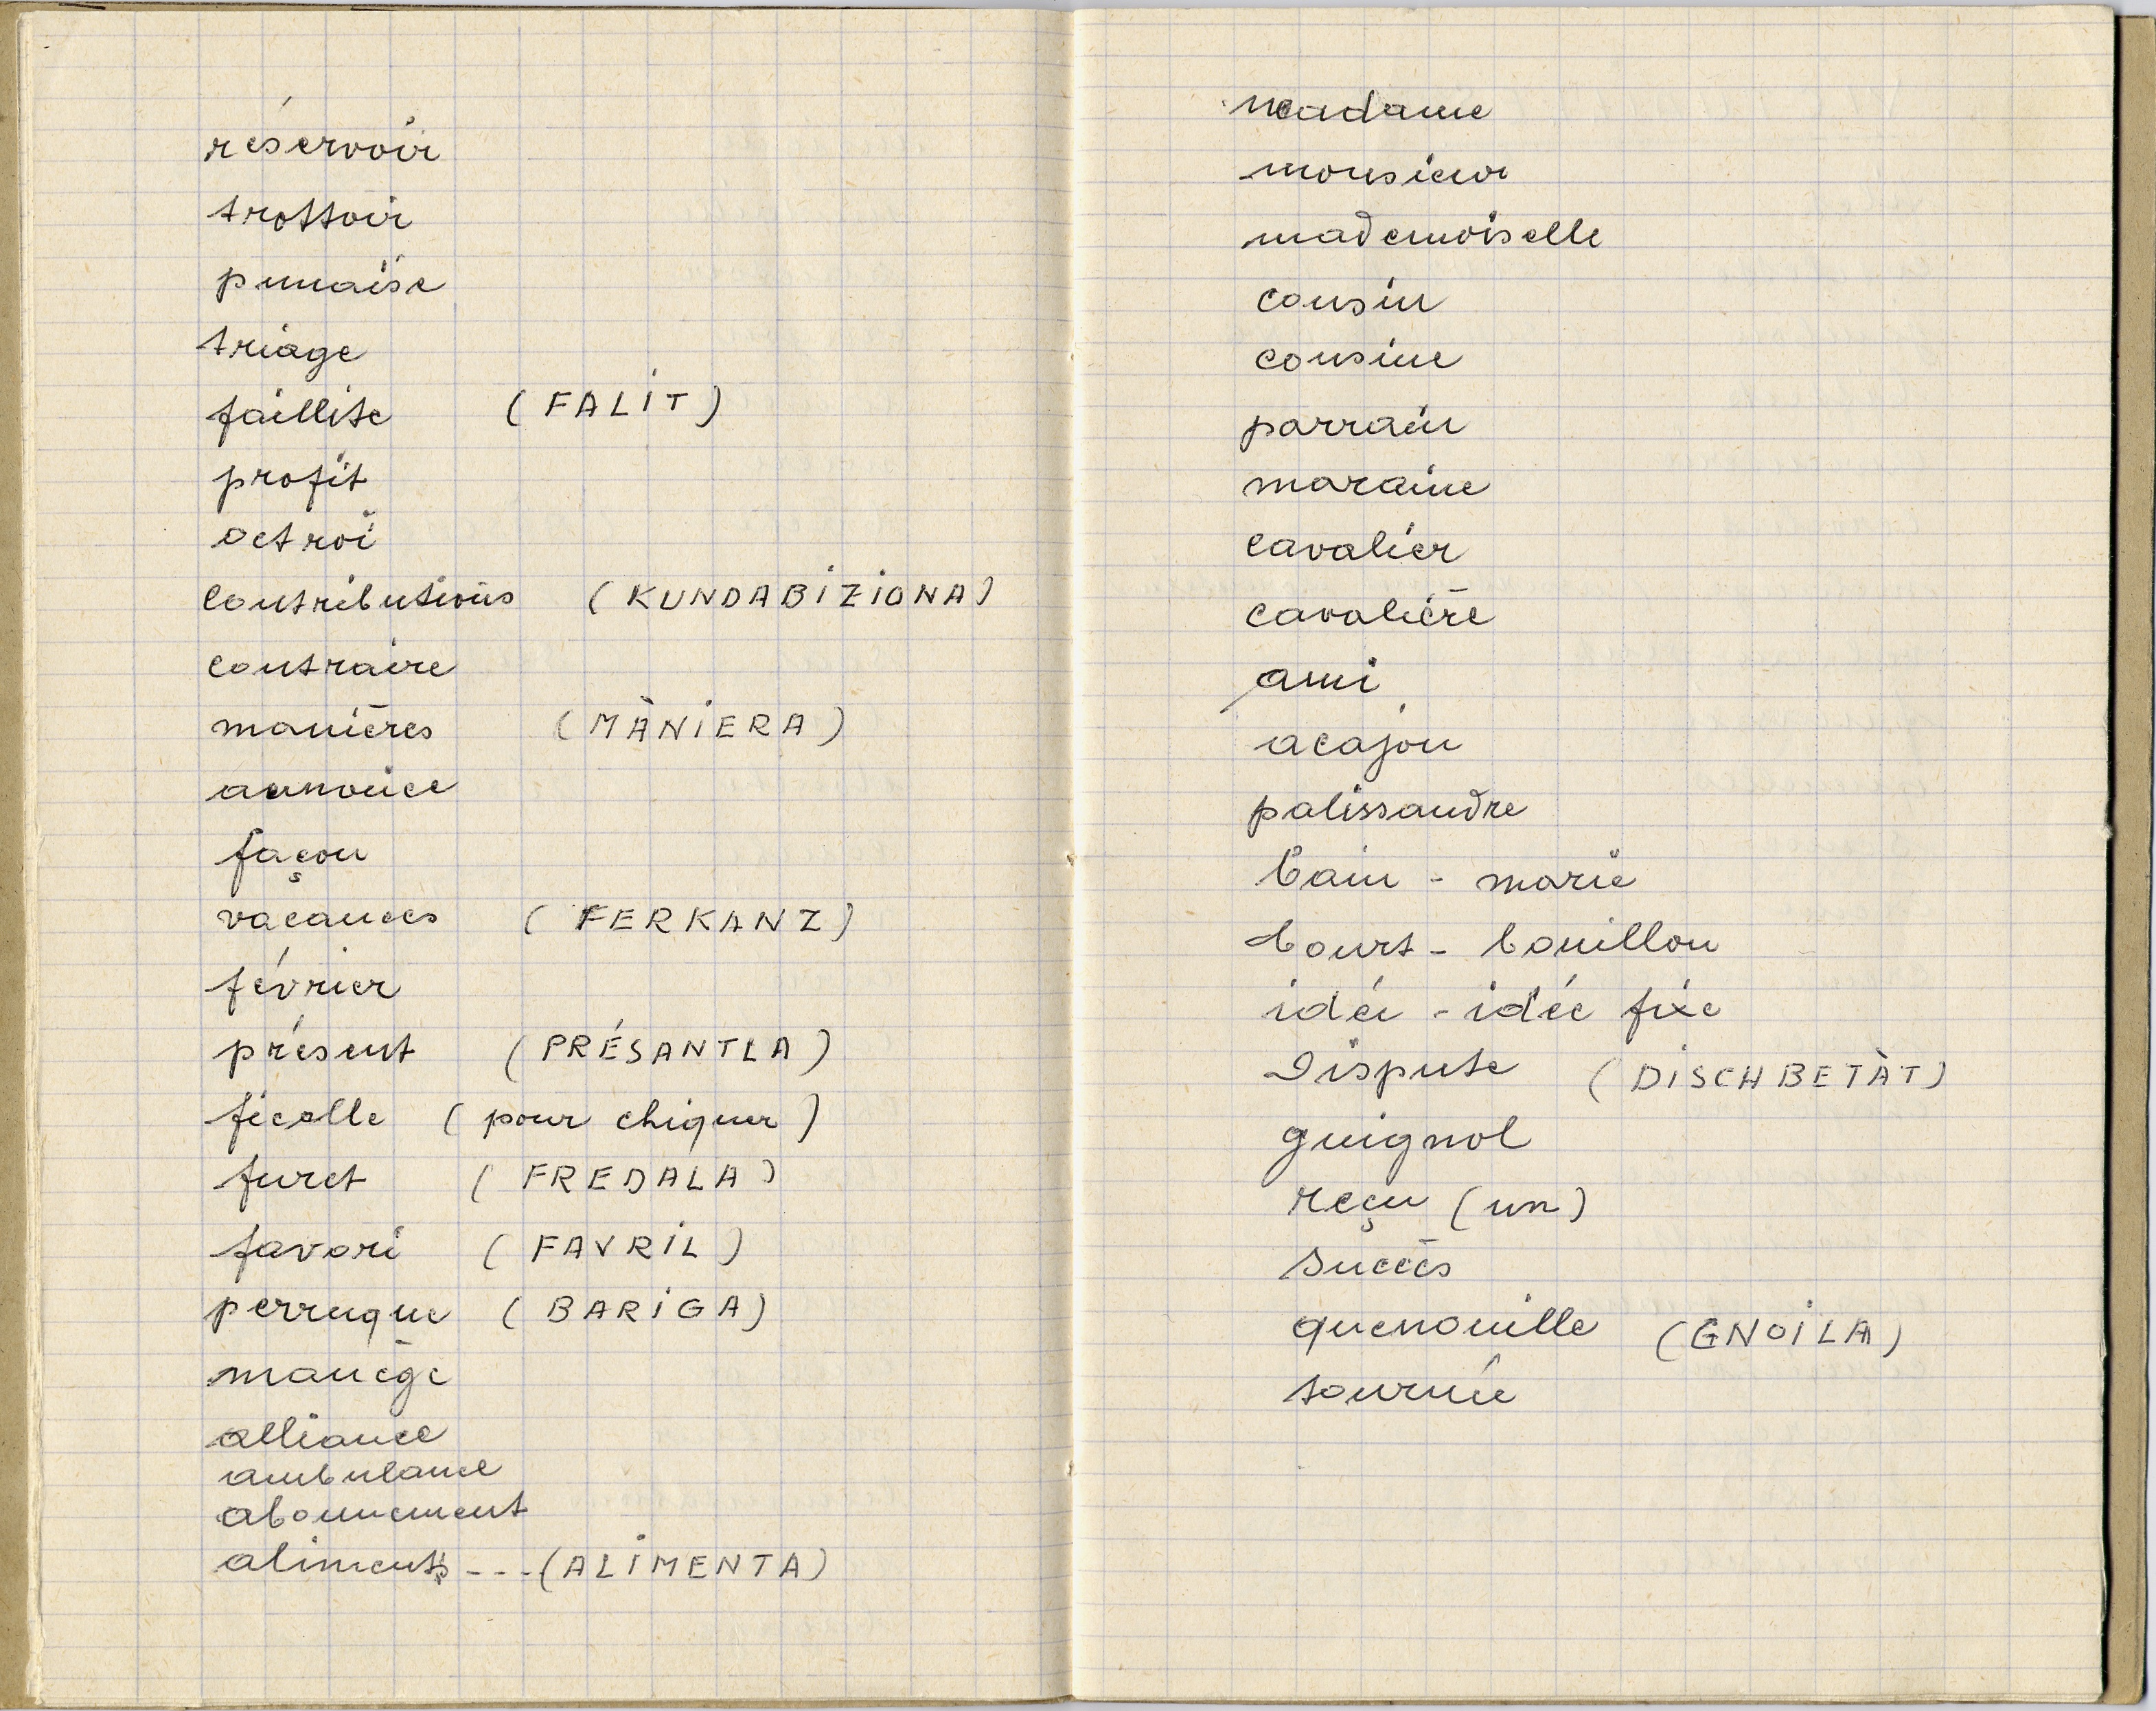 réservoir
trottoir
punaise
triage
faillite (FALIT)
profit
octroi
contributions (KUNDABIZIONA)
contraire
manières (MÀNIERA)
annonce
façon
vacances (FERKANZ)
février
présent (PRÉSANTLA)
ficelle (pour chiquer)
furet (FREDALA)
favori (FAVRIL)
perruque (BARIGA)
manège
alliance
ambulance
abonnement
aliments - - - (ALIMENTA)
madame
monsieur
mademoiselle
cousin
cousine
parrain
maraine
cavalier
cavalière
ami
acajou
palissandre
bain - marie
court - bouillon
idée - idée fixe
Dispute (DISCHBETÀT)
guignol
reçu (un)
succès
quenouille (GNOILA)
tournée